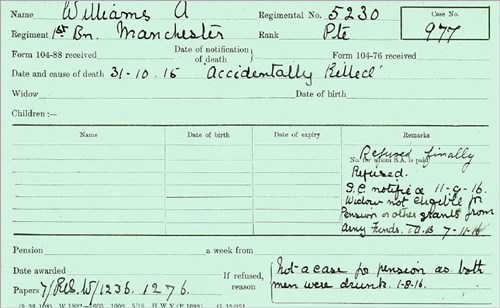 Name Williams A Regimental No. 5230 Case No.
Regiment 1st Bn. Manchester Rank Pte 977
Form 104-88 received Date of notification of death Form 104-76 received
Date and cause of death 31-10-15 "Accidentally Killed"
Widow Date of birth
Children :—
Name Date of birth Date of expiry Remarks
Refused finally
No. for whom S.A. is paid
Refused.
S.C. notified 11-9-16.
Widow not eligible for
Pension or other grants from
Army Funds. 7-11-16
Pension a week from
Date awarded
Papers 7/Rec W/1236. 1276.
If refused, reason
Not a case for pension as both
men were drunk. 1-8-16.